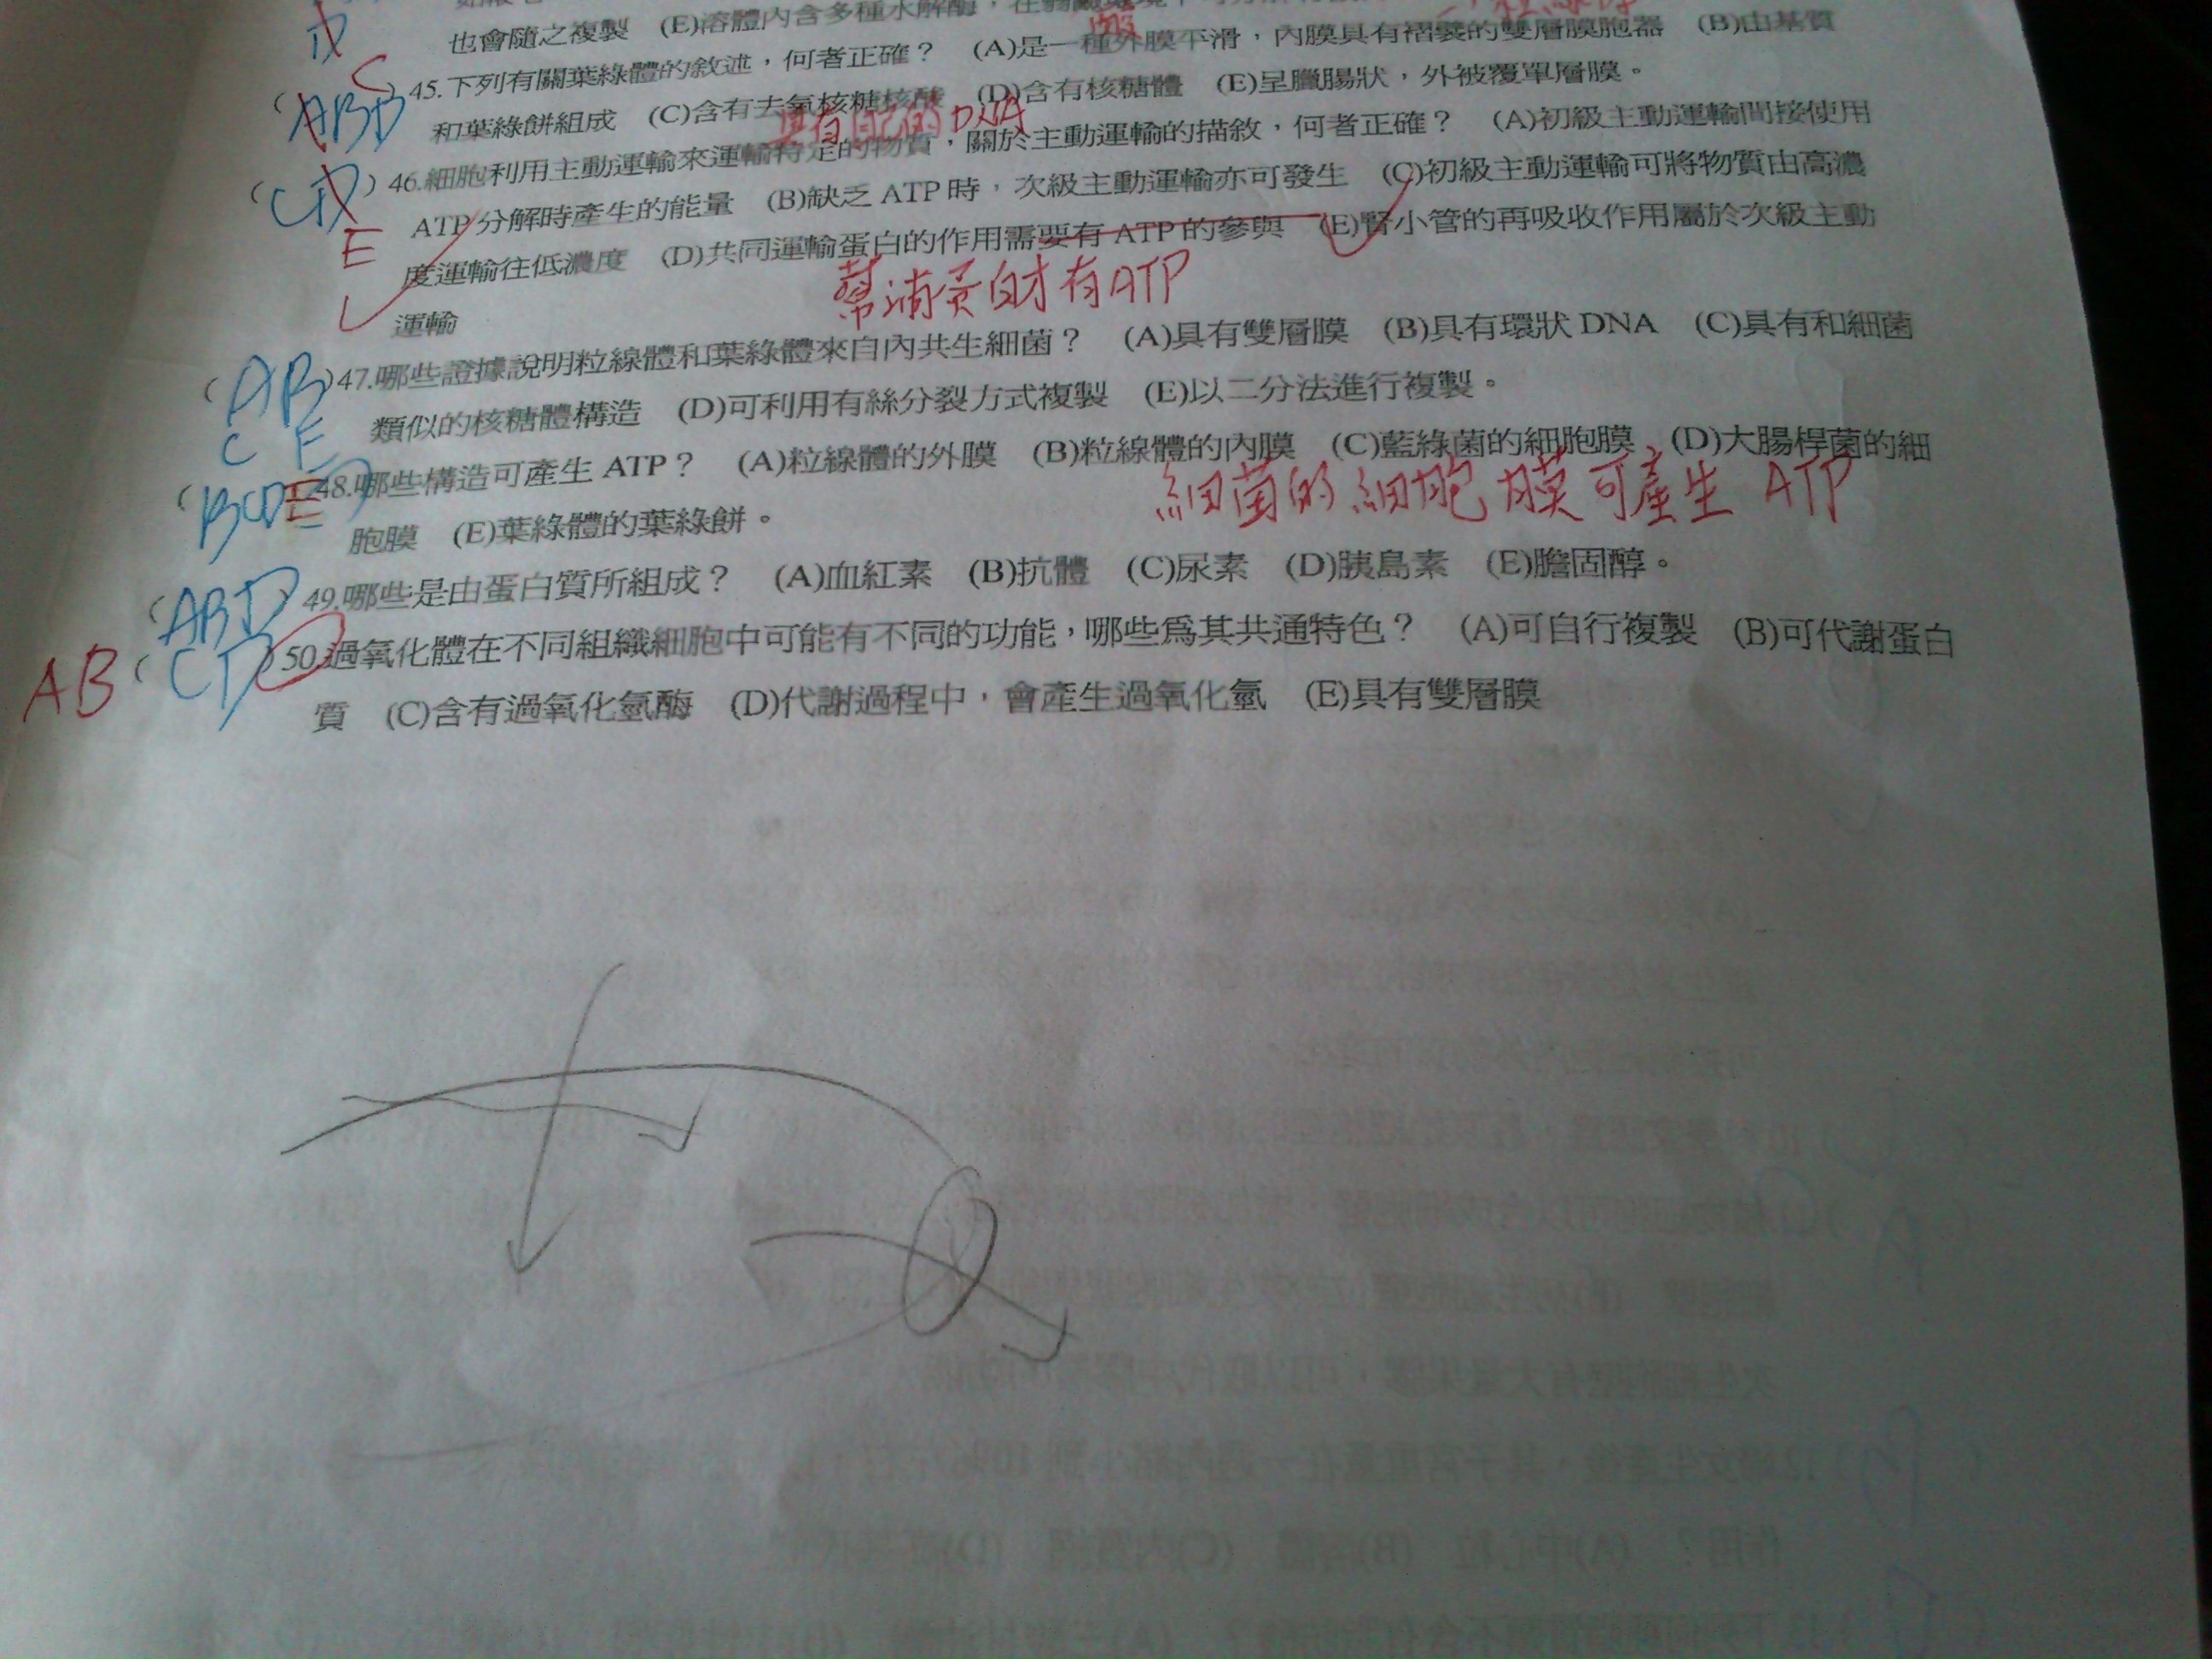 也會隨之複製 (E)溶體內含多種水解酶，在
C ) 45.下列有關葉綠體的敘述，何者正確？ (A)是一種外膜平滑，內膜具有褶襞的雙層膜胞器 (B)由基質
(ABD
和葉綠餅組成 (C)含有去氧核糖核酸 (D)含有核糖體 (E)呈臘腸狀，外被覆單層膜。
具有自己的DNA
(CD ) 46.細胞利用主動運輸來運輸特定的物質，關於主動運輸的描敘，何者正確？ (A)初級主動運輸間接使用
E
ATP分解時產生的能量 (B)缺乏ATP時，次級主動運輸亦可發生 (C)初級主動運輸可將物質由高濃
度運輸往低濃度 (D)共同運輸蛋白的作用需要有ATP的參與 (E)腎小管的再吸收作用屬於次級主動
幫浦蛋白才有ATP
運輸
(AB )47.哪些證據說明粒線體和葉綠體來自內共生細菌？ (A)具有雙層膜 (B)具有環狀DNA (C)具有和細菌
C E
類似的核糖體構造 (D)可利用有絲分裂方式複製 (E)以二分法進行複製。
(BCDE )48.哪些構造可產生ATP？ (A)粒線體的外膜 (B)粒線體的內膜 (C)藍綠菌的細胞膜 (D)大腸桿菌的細
細菌的細胞膜可產生ATP
胞膜 (E)葉綠體的葉綠餅。
(ABD 49.哪些是由蛋白質所組成？ (A)血紅素 (B)抗體 (C)尿素 (D)胰島素 (E)膽固醇。
AB (CD )50.過氧化體在不同組織細胞中可能有不同的功能，哪些爲其共通特色？ (A)可自行複製 (B)可代謝蛋白
質 (C)含有過氧化氫酶 (D)代謝過程中，會產生過氧化氫 (E)具有雙層膜